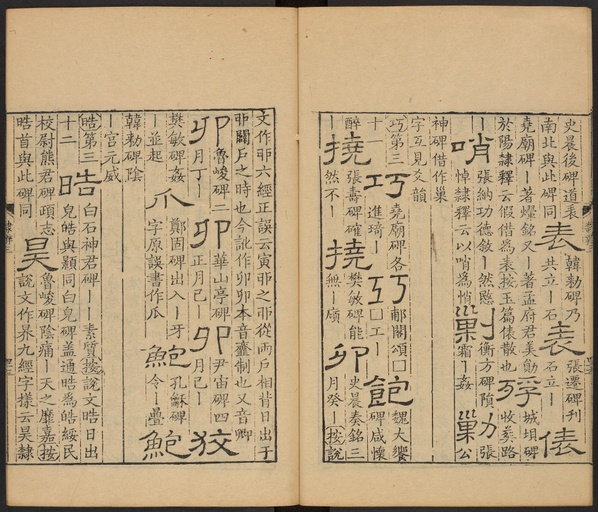 史晨後碑道表
南北與此碑同表韓勑碑乃共立一石表張遷碑刊石立一俵
堯廟碑一著爗銘又一著孟府君美勛殍城垻碑
於陽隸釋云假借為表按玉篇俵散也丂收葬路
一哨張納功德敘一然黙悼隸釋云以哨為悄刂衡方碑隕一力張
神碑借作巢巢霜一姦巢公
字互見爻韻
巧第三十一巧堯廟碑各進琦一丂郙閣頌囗囗工飽魏大饗碑咸懷
醉一撓張壽碑確然不一撓樊敏碑能無一𢈔卯史晨奏銘三月癸一按說
文作丣六經正誤云寅丣之丣從兩戶相背日出于
丣闢戶之時也今訛作卯卯本音𧗿制也又音卿
卯魯峻碑二月丁一卯華山亭碑正月己一卯尹宙碑四月己一狡
樊敏碑姦一並起爪鄭固碑出入一牙字原誤書作瓜鮑孔龢碑令一疊鮑
韓勑碑陰
一宮元威
晧第三十二晧白石神君碑一一素質按說文晧日出
皃晧與顥同白皃碑蓋通晧為皓綏民
校尉熊君碑頌志昊魯峻碑陰痛一天之靡嘉按
晧首與此碑同說文作昦九經字樣云昊隸